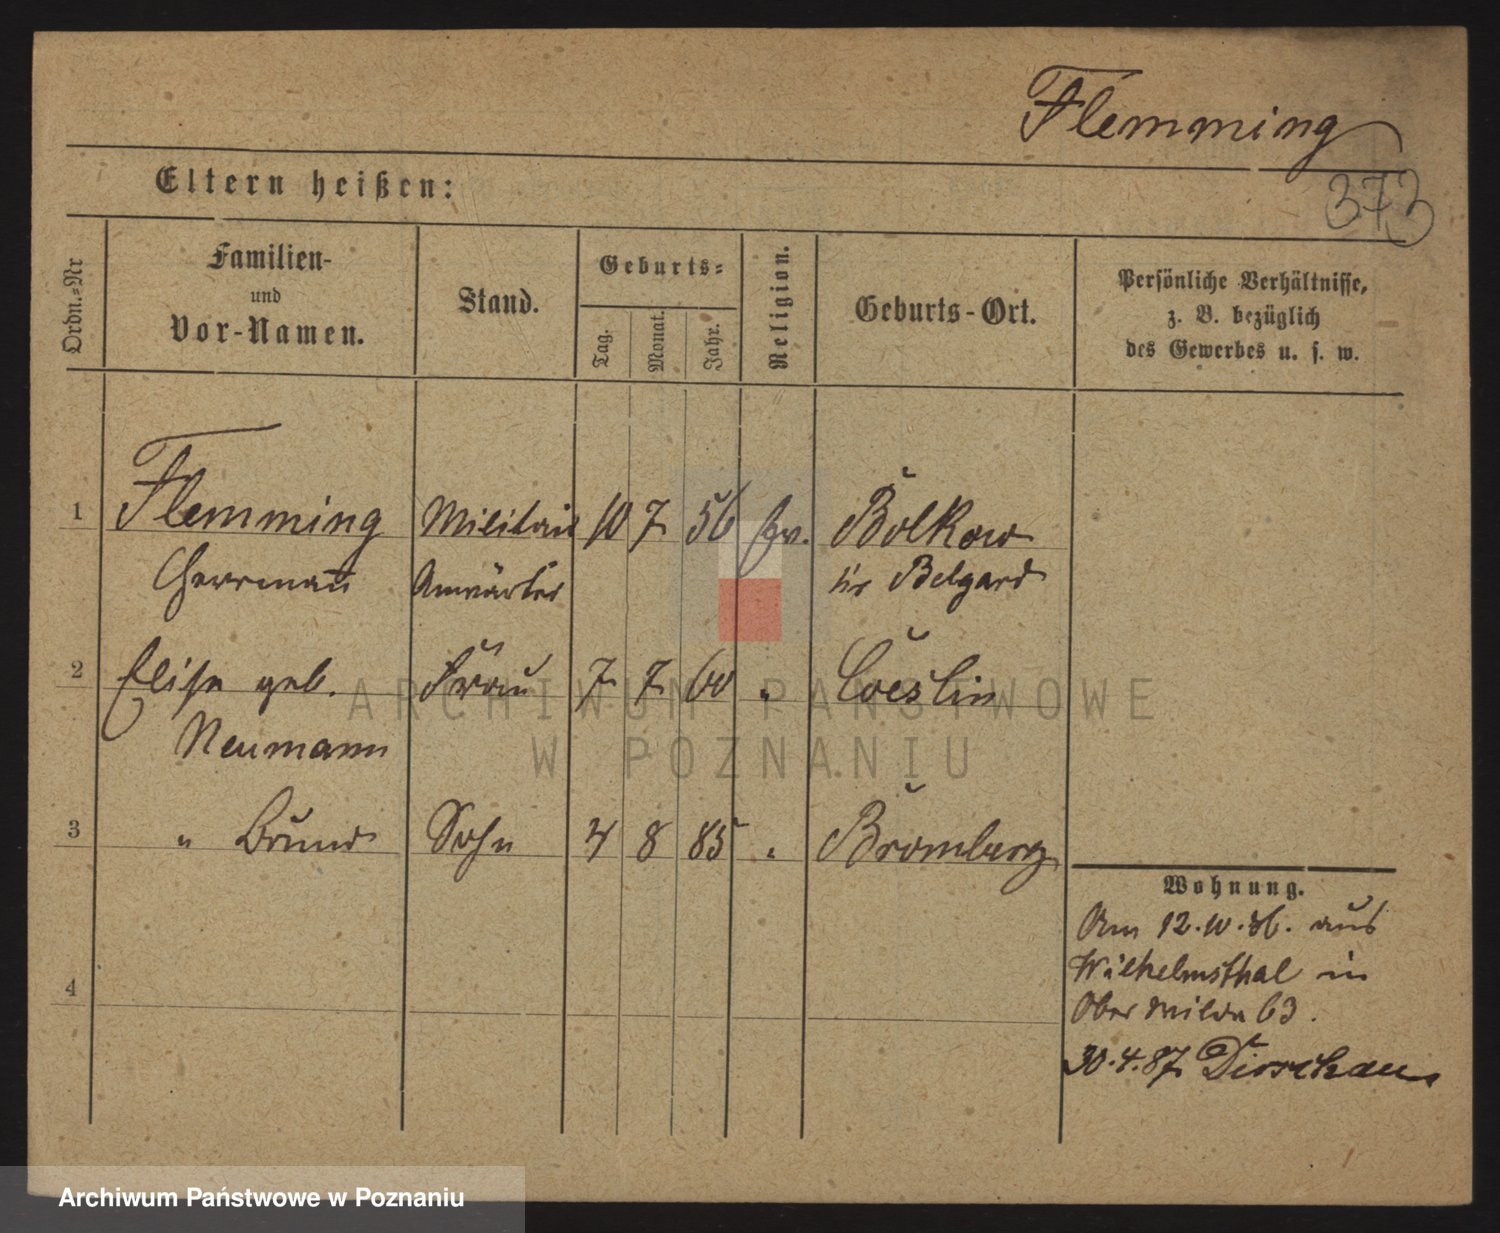 Flemming
373
Eltern heißen:
Ordn.-Nr
Familien-
und
Vor-Namen.
Stand.
Geburts-
Tag.
Monat.
Jahr.
Religion.
Geburts-Ort.
Persönliche Verhältnisse,
z. B. bezüglich
des Gewerbes u. s. w.
1 Flemming Militair 10 7 56 ev. Bolkow
Herrmann Anwärter Kr Belgard
2 Elise geb. Frau 7 7 60 " Coeslin
Neumann
3 " Bruno Sohn 4 8 85 " Bromberg
4
Wohnung.
Am 12.10.86. aus
Wilhelmsthal in
Ober Wilda 63.
30.4.87 Dirschau
ARCHIWUM PAŃSTWOWE
W POZNANIU
Archiwum Państwowe w Poznaniu